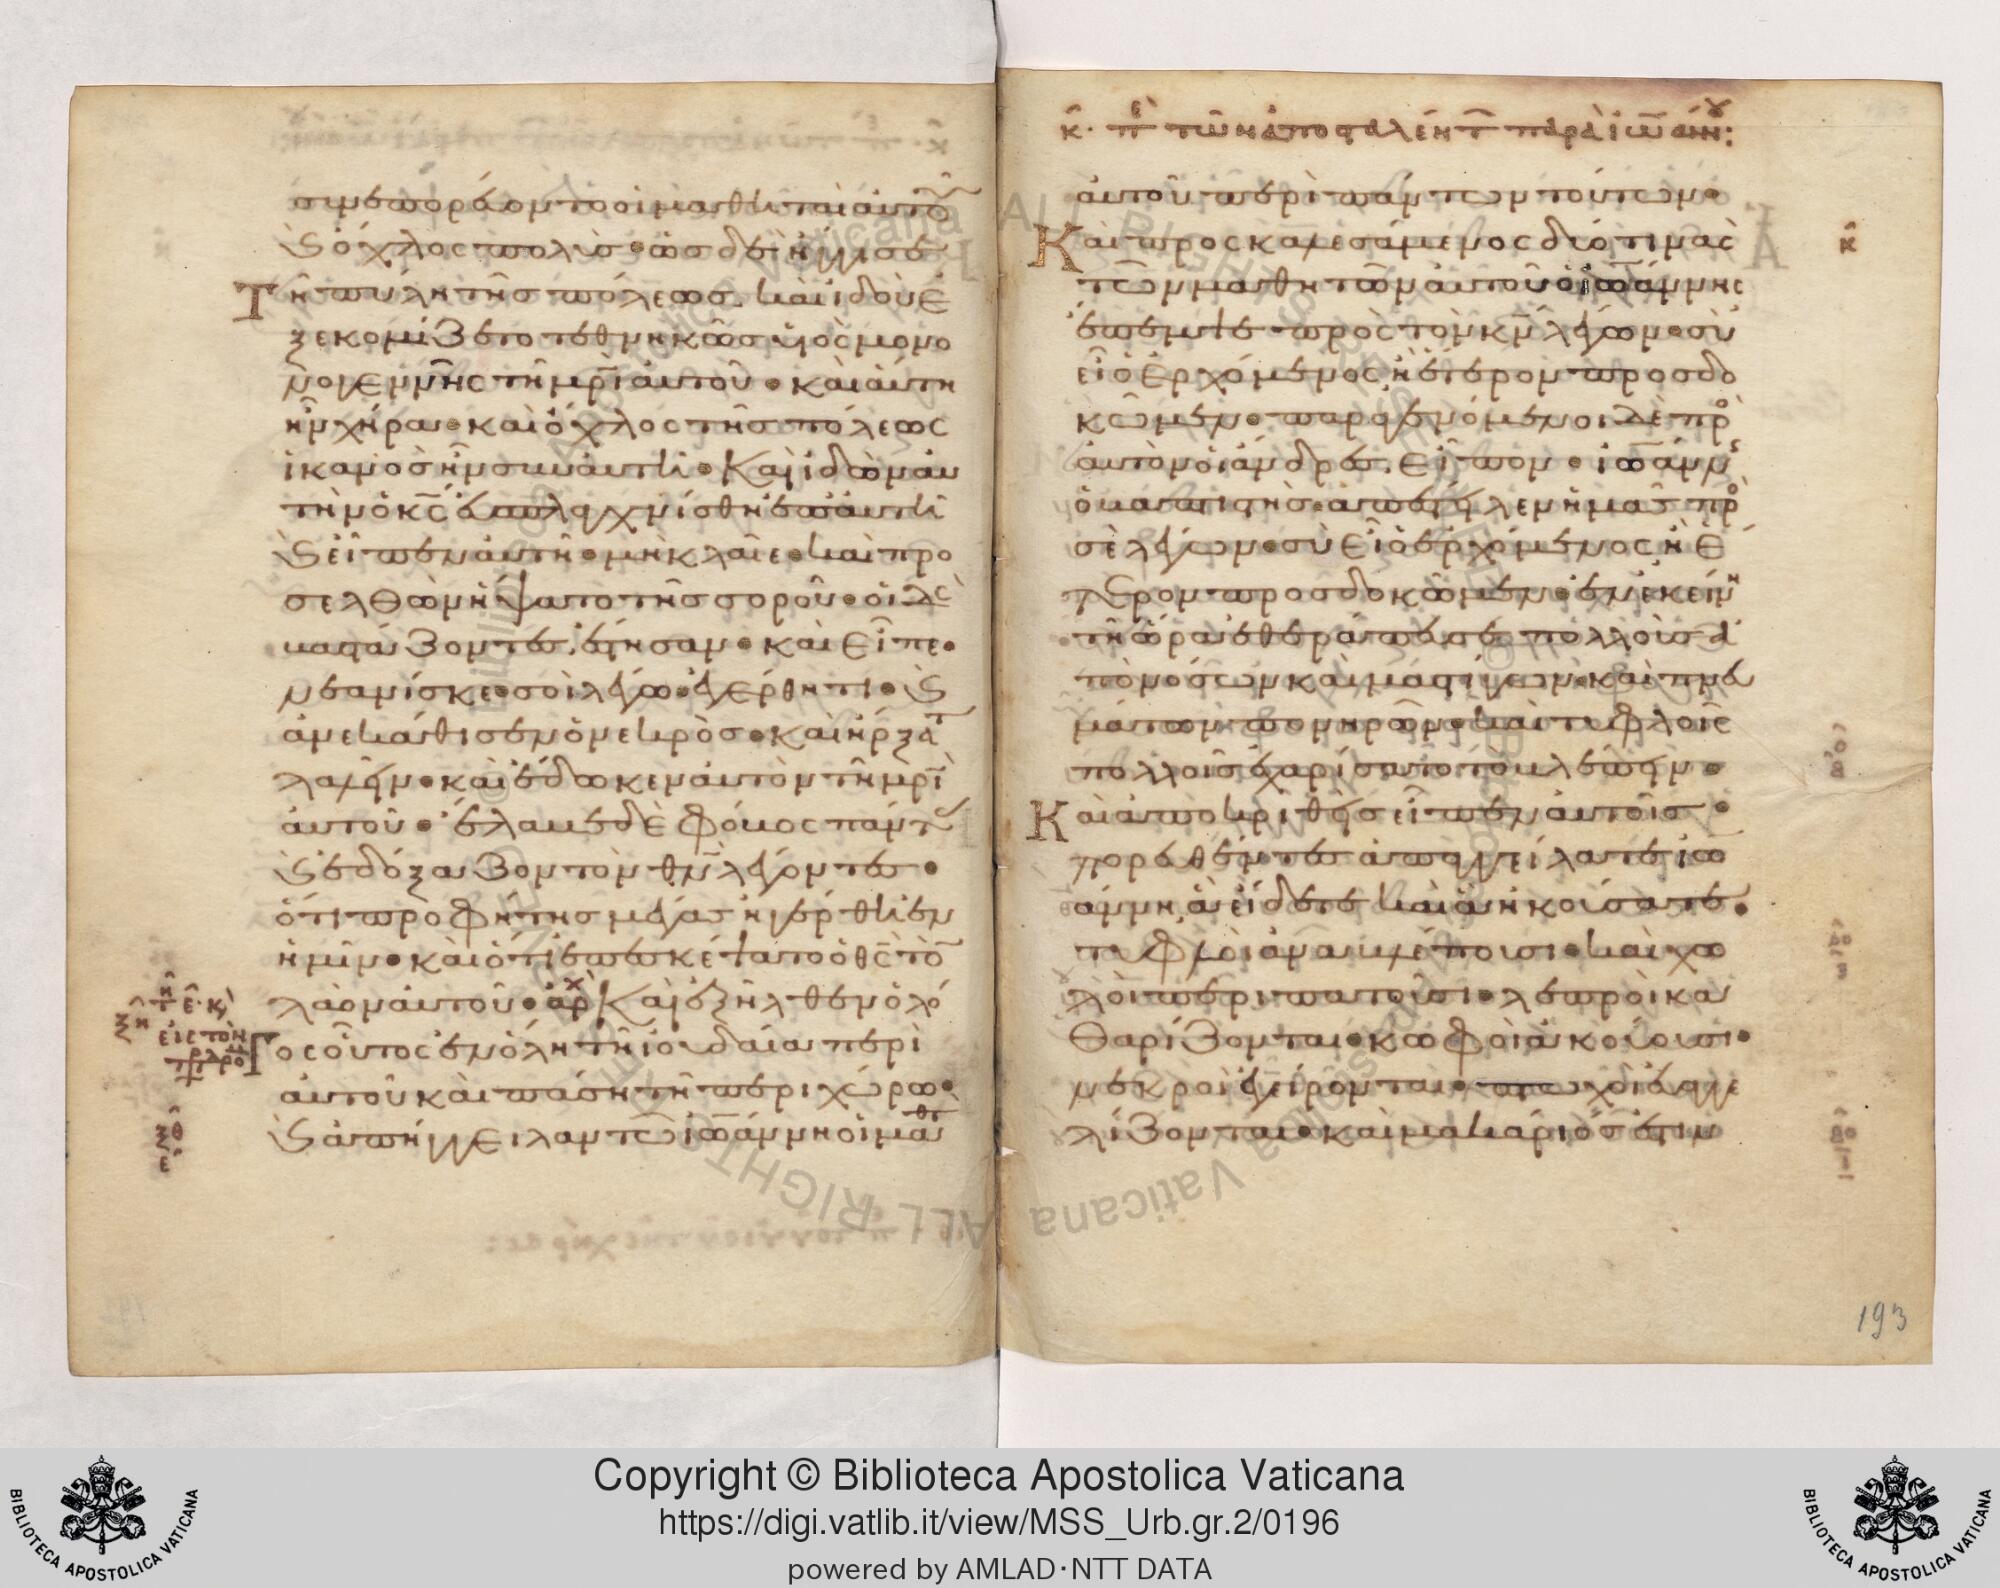 σινεπορεύοντο οἱ μαθηταὶ αυτοῦ
ϗ ὄχλος πολύς· ὡς δὲ ἤγγισε
Τῆ πύλη τῆς πόλεως. καὶ ἰδοὺ ἐ
ξεκομίζετο τεθνηκὼς υἱὸς μονο
μονογεννὴς τῆ μρ̅ὶ αὐτοῦ· καὶ αὐτη
ἦν χήρα· καὶ ὄχλος τῆς πόλεως
ἱκανὸς ἦν σὺν αὐτῆ· Καὶ ἰδὼν αὐ
τὴν ὁ κ̅ς ἐσπλαγχνίσθη ἐπ' αὐτῆ
ϗ εἶπεν αὐτῆ· μὴ κλαῖε· καὶ προ
σελθὼν ἥψατο τῆς σοροῦ· οἱ δὲ
βαστάζοντες, ἔστησαν· καὶ εἶπε·
νεανίσκε· σοὶ λέγω· ἐγέρθητι· ϗ
ἀνεκάθισεν ὁ νεκρὸς· καὶ ἤρξατ
λαλεῖν· καὶ ἔδωκεν αὐτὸν τῆ μρ̅ὶ
αὐτοῦ· ἔλαβε δὲ φόβος πάντας
ϗ ἐδόξαζον τὸν θ̅ν λέγοντες·
ὅτι προφήτης μέγας ἠγέρθη ἐν
ἡμῖν· καὶ ὅτι ἐπεσκέψατο ὁ θ̅ς τὸν
λαὸν αὐτοῦ· ἀρχ Καὶ ἐξῆλθεν ὁ λό
Γος οὗτος ἐν ὅλη τῆ ἰουδαία περὶ
αὐτοῦ καὶ πάση τῆ περιχώρω·
ϗ ἀπήγγειλαν τῶ ἰωάννη οἱ μαθ
ξη
εἰς τὸν
ξθ
κ· πε τῶν ἀποσταλέντ παρὰ ἰωάνν:
αὐτοῦ περὶ πάντων τούτων·
Καὶ προσκαλεσάμενος δύο τινὰς
τῶν μαθητῶν αὐτοῦ ὁ ἰωάννης
ἔπεμψε πρὸς τὸν κ̅ν λέγων· σὺ
εἶ ὁ ἐρχόμενος ἢ ἕτερον προσδο
κῶμεν· παραγενόμενοι δὲ πρὸ
αὐτὸν οἱ ἄνδρες, εἶπον· ἰωάνν
ὁ βαπτιστὴς ἀπέσταλκεν ἡμᾶς πρὸ
σὲ λέγων· σὺ εἶ ὁ ἐρχόμενος ἢ ἕ
τερον προσδοκῶμεν· ἐν ἐκείν
τῆ ὥρα ἐθεράπευσε πολλοὺς ἀ
πὸ νόσων καὶ μαστίγων· καὶ πνευ
μάτων πονηρῶν· καὶ τυφλοῖς
πολλοῖς ἐχαρίσατο τὸ βλέπειν·
Καὶ ἀποκριθεὶς εἶπεν αὐτοῖς·
πορευθέντες ἀπαγγείλατε ἰω
άννη, ἃ εἴδετε καὶ ἃ ἠκούσατε·
τυφλοὶ ἀναβλέπουσι· καὶ χω
λοὶ περιπατοῦσι· λεπροὶ κα
θαρίζονται· κωφοὶ ἀκούουσι·
νεκροὶ ἐγείρονται· πτωχοὶ εὐαγγε
λίζονται· καὶ μακάριός ἐστιν
κ
193
Copyright © Biblioteca Apostolica Vaticana
https://digi.vatlib.it/view/MSS_Urb.gr.2/0196
powered by AMLAD·NTT DATA
BIBLIOTECA APOSTOLICA VATICANA
BIBLIOTECA APOSTOLICA VATICANA